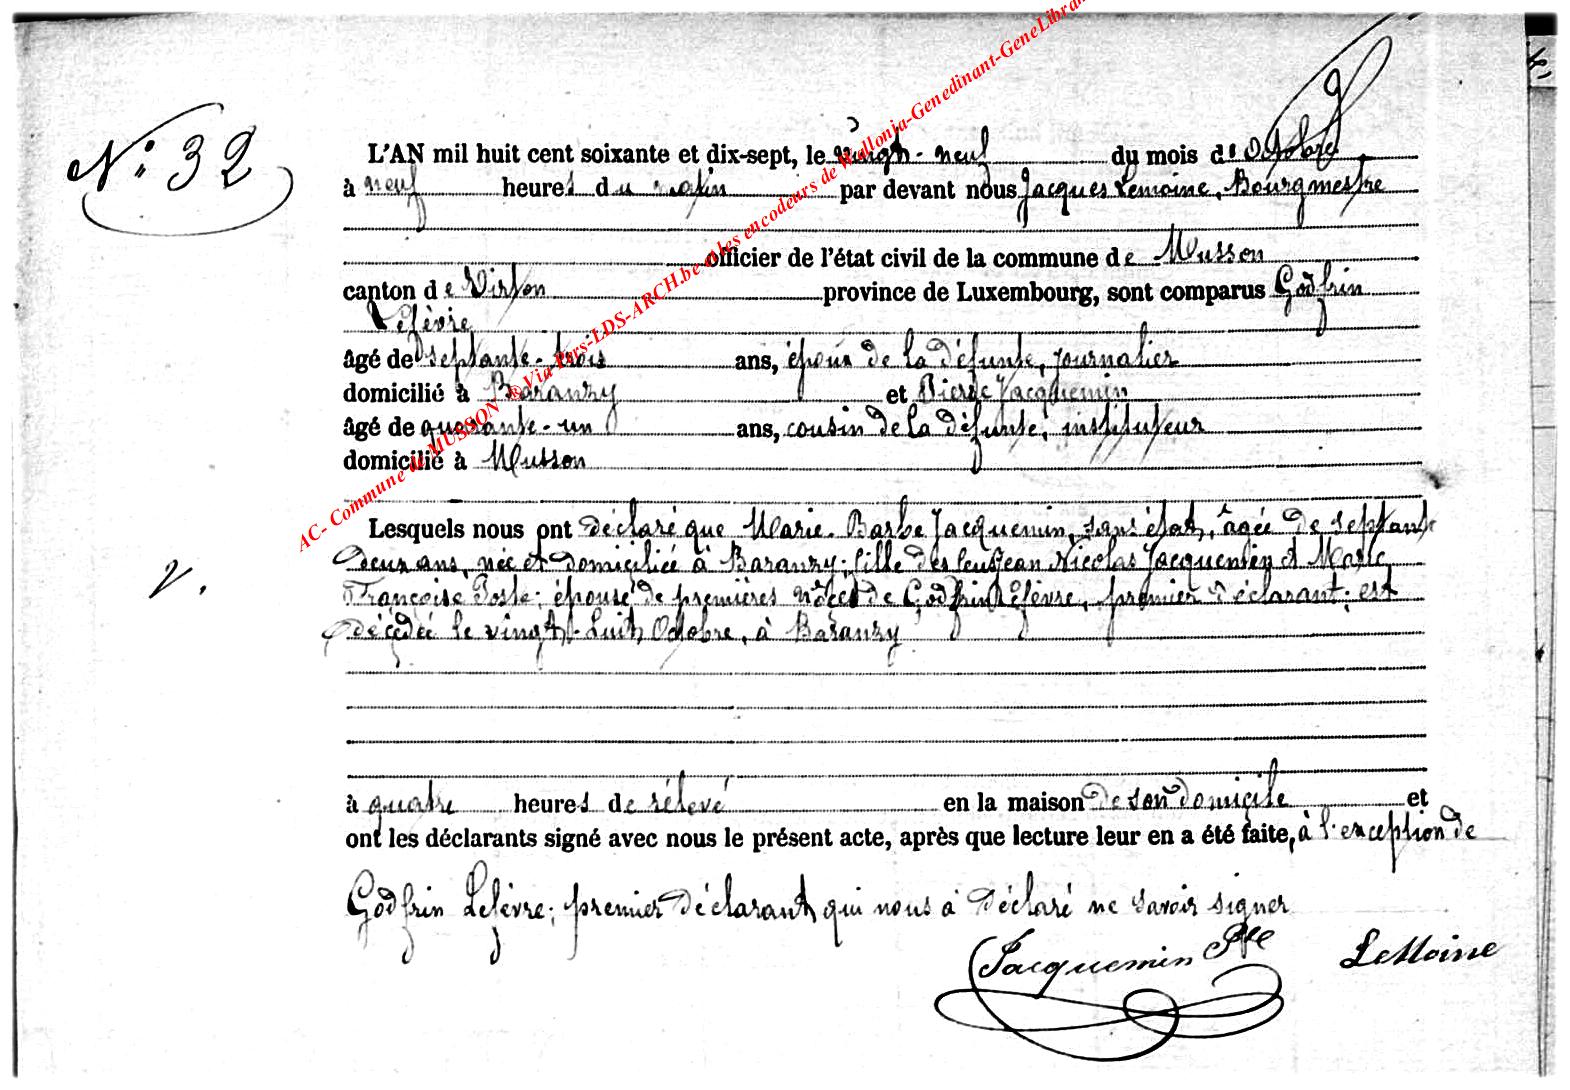 N° 32
L'AN mil huit cent soixante et dix-sept, le vingt-neuf du mois d'Octobre
à neuf heures du matin par devant nous Jacques Lemoine, Bourgmestre
officier de l'état civil de la commune de Musson
canton de Virton province de Luxembourg, sont comparus Godfrin
Lefèvre
âgé de septante-trois ans, époux de la défunte, journalier
domicilié à Baranzy et Pierre Jacquemin
âgé de quarante-un ans, cousin de la défunte, instituteur
domicilié à Musson
Lesquels nous ont déclaré que Marie-Barbe Jacquemin, sans état, âgée de septante
deux ans, née et domiciliée à Baranzy; fille des feus Jean Nicolas Jacquemin et Marie
Françoise Posle; épouse de premières nôces de Godfrin Lefèvre, premier déclarant; est
décédée le vingt-huit Octobre, à Baranzy
V.
à quatre heures de rélevé en la maison de son domicile et
ont les déclarants signé avec nous le présent acte, après que lecture leur en a été faite, à l'exception de
Godfrin Lefèvre; premier déclarant qui nous a déclaré ne savoir signer
Jacquemin Pre LeMoine
AC- Commune de MUSSON ® Via Pars-LDS-ARCH.be et les encodeurs de Wallonia-Genedinant-GeneLibran